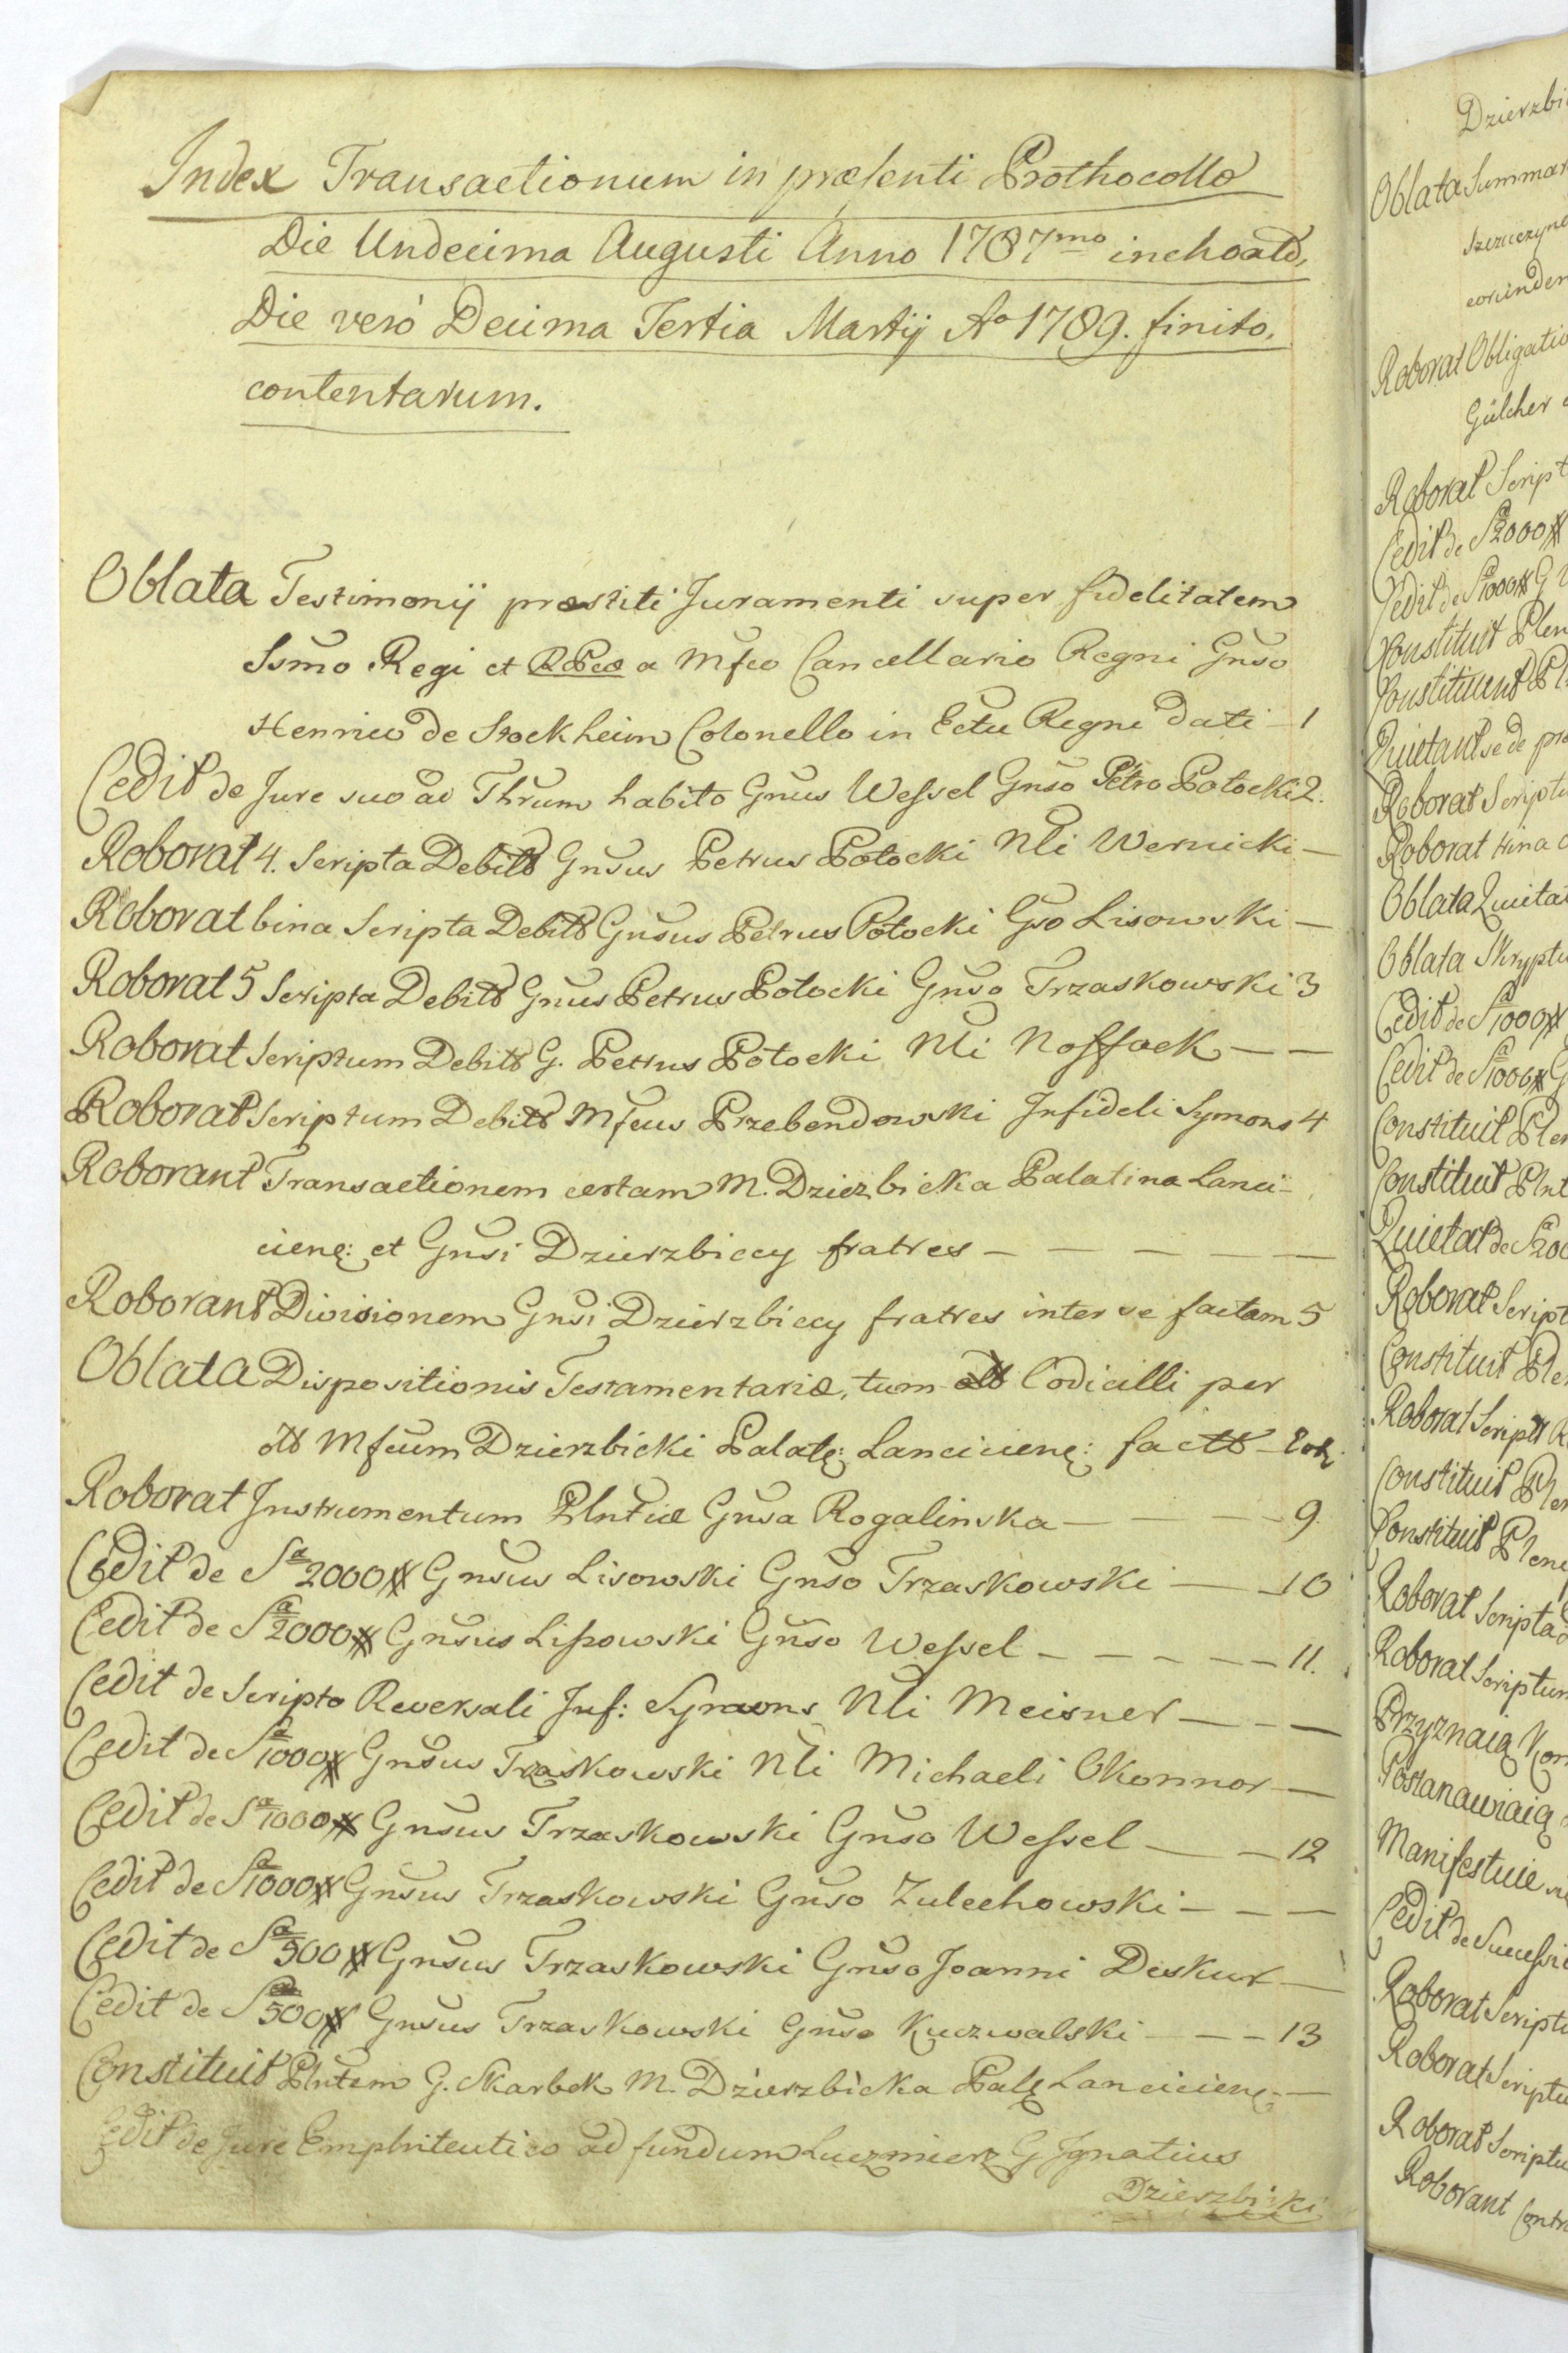 Index Transactionum in præsenti Prothocollo
Die Undecima Augusti Anno 1787mo inchoato,
Die verò Decima Tertia Martij Ao 1789. finito.
contentarum.
Oblata Testimonij præstiti Juramenti super fidelitatem
Ssmo Regi et RPcæ a Mfco Cancellario Regni Gnso
Henrico de Stockheim Colonello in Ectu Regni dati 1
Cedit de Jure suo ad Thrum habito Gnus Wessel Gnso Petro Potocki 2.
Roborat 4. Scripta Debiti Gnsus Petrus Potocki Nli Wernicki —
Roborat bina Scripta Debiti Gnsus Petrus Potocki Gso Lisowski —
Roborat 5 Scripta Debiti Gnus Petrus Potocki Gnso Trzaskowski 3
Roborat Scriptum Debiti G. Petrus Potocki Nli Noffock — —
Roborat Scriptum Debiti Mfcus Przebendowski Infideli Symons 4
Roborant Transactionem certam M. Dzierzbicka Palatina Lanci-
cienę: et Gnsi Dzierzbiccy fratres — — — — —
Roborant Divisionem Gnsi Dzierzbiccy fratres inter se factam 5
Oblata Dispositionis Testamentariæ, tum Codicilli per
Mfcum Dzierzbicki Palatę: Lancicienę: facti
Roborat Instrumentum Plntiæ Gnsa Rogalinska — — — 9.
Cedit de Sa 2000 # Gnsus Lisowski Gnso Trzaskowski — 10
Cedit de Sa 2000 # Gnsus Lissowski Gnso Wessel — — — — 11.
Cedit de Scripto Reversali Inf: Symons Nli Meisner — — —
Cedit de Sa 1000 # Gnsus Trzaskowski Nli Michaeli Okonnor —
Cedit de Sa 1000 # Gnsus Trzaskowski Gnso Wessel — — 12
Cedit de Sa 1000 # Gnsus Trzaskowski Gnso Zulechowski — — —
Cedit de Sa 500 # Gnsus Trzaskowski Gnso Joanni Deskur —
Cedit de Sa 500 # Gnsus Trzaskowski Gnso Kuczwalski — — — 13
Constituit Plntem G. Skarbek M. Dzierzbicka Palę Lancicienę: —
Cedit de Jure Emphiteutico ad fundum Luczmierz G Ignatius
Dzierzbicki
Oblata
Roborat Obligatio
Gülcher
Roborat Script
Cedit de Sa 2000 #
Cedit de Sa 1000 # G
Constituit Plen
Constituunt
Quietant se de
Roborat Scripta
Roborat trina
Oblata
Oblata Skryptu
Cedit de Sa 1000 #
Cedit de Sa 1000 # G
Constituit Plen
Constituit Plnt
Quietat de Sa 200
Roborat Script
Constituit Ple
Roborat Script
Constituit Plen
Constituit Plen
Roborat Scripta
Roborat Scriptum
Przyznaią Kon
Postanawiaią
Manifestuie
Cedit de
Roborat Scriptu
Roborat Scriptu
Roborat Scriptu
Roborant Contr